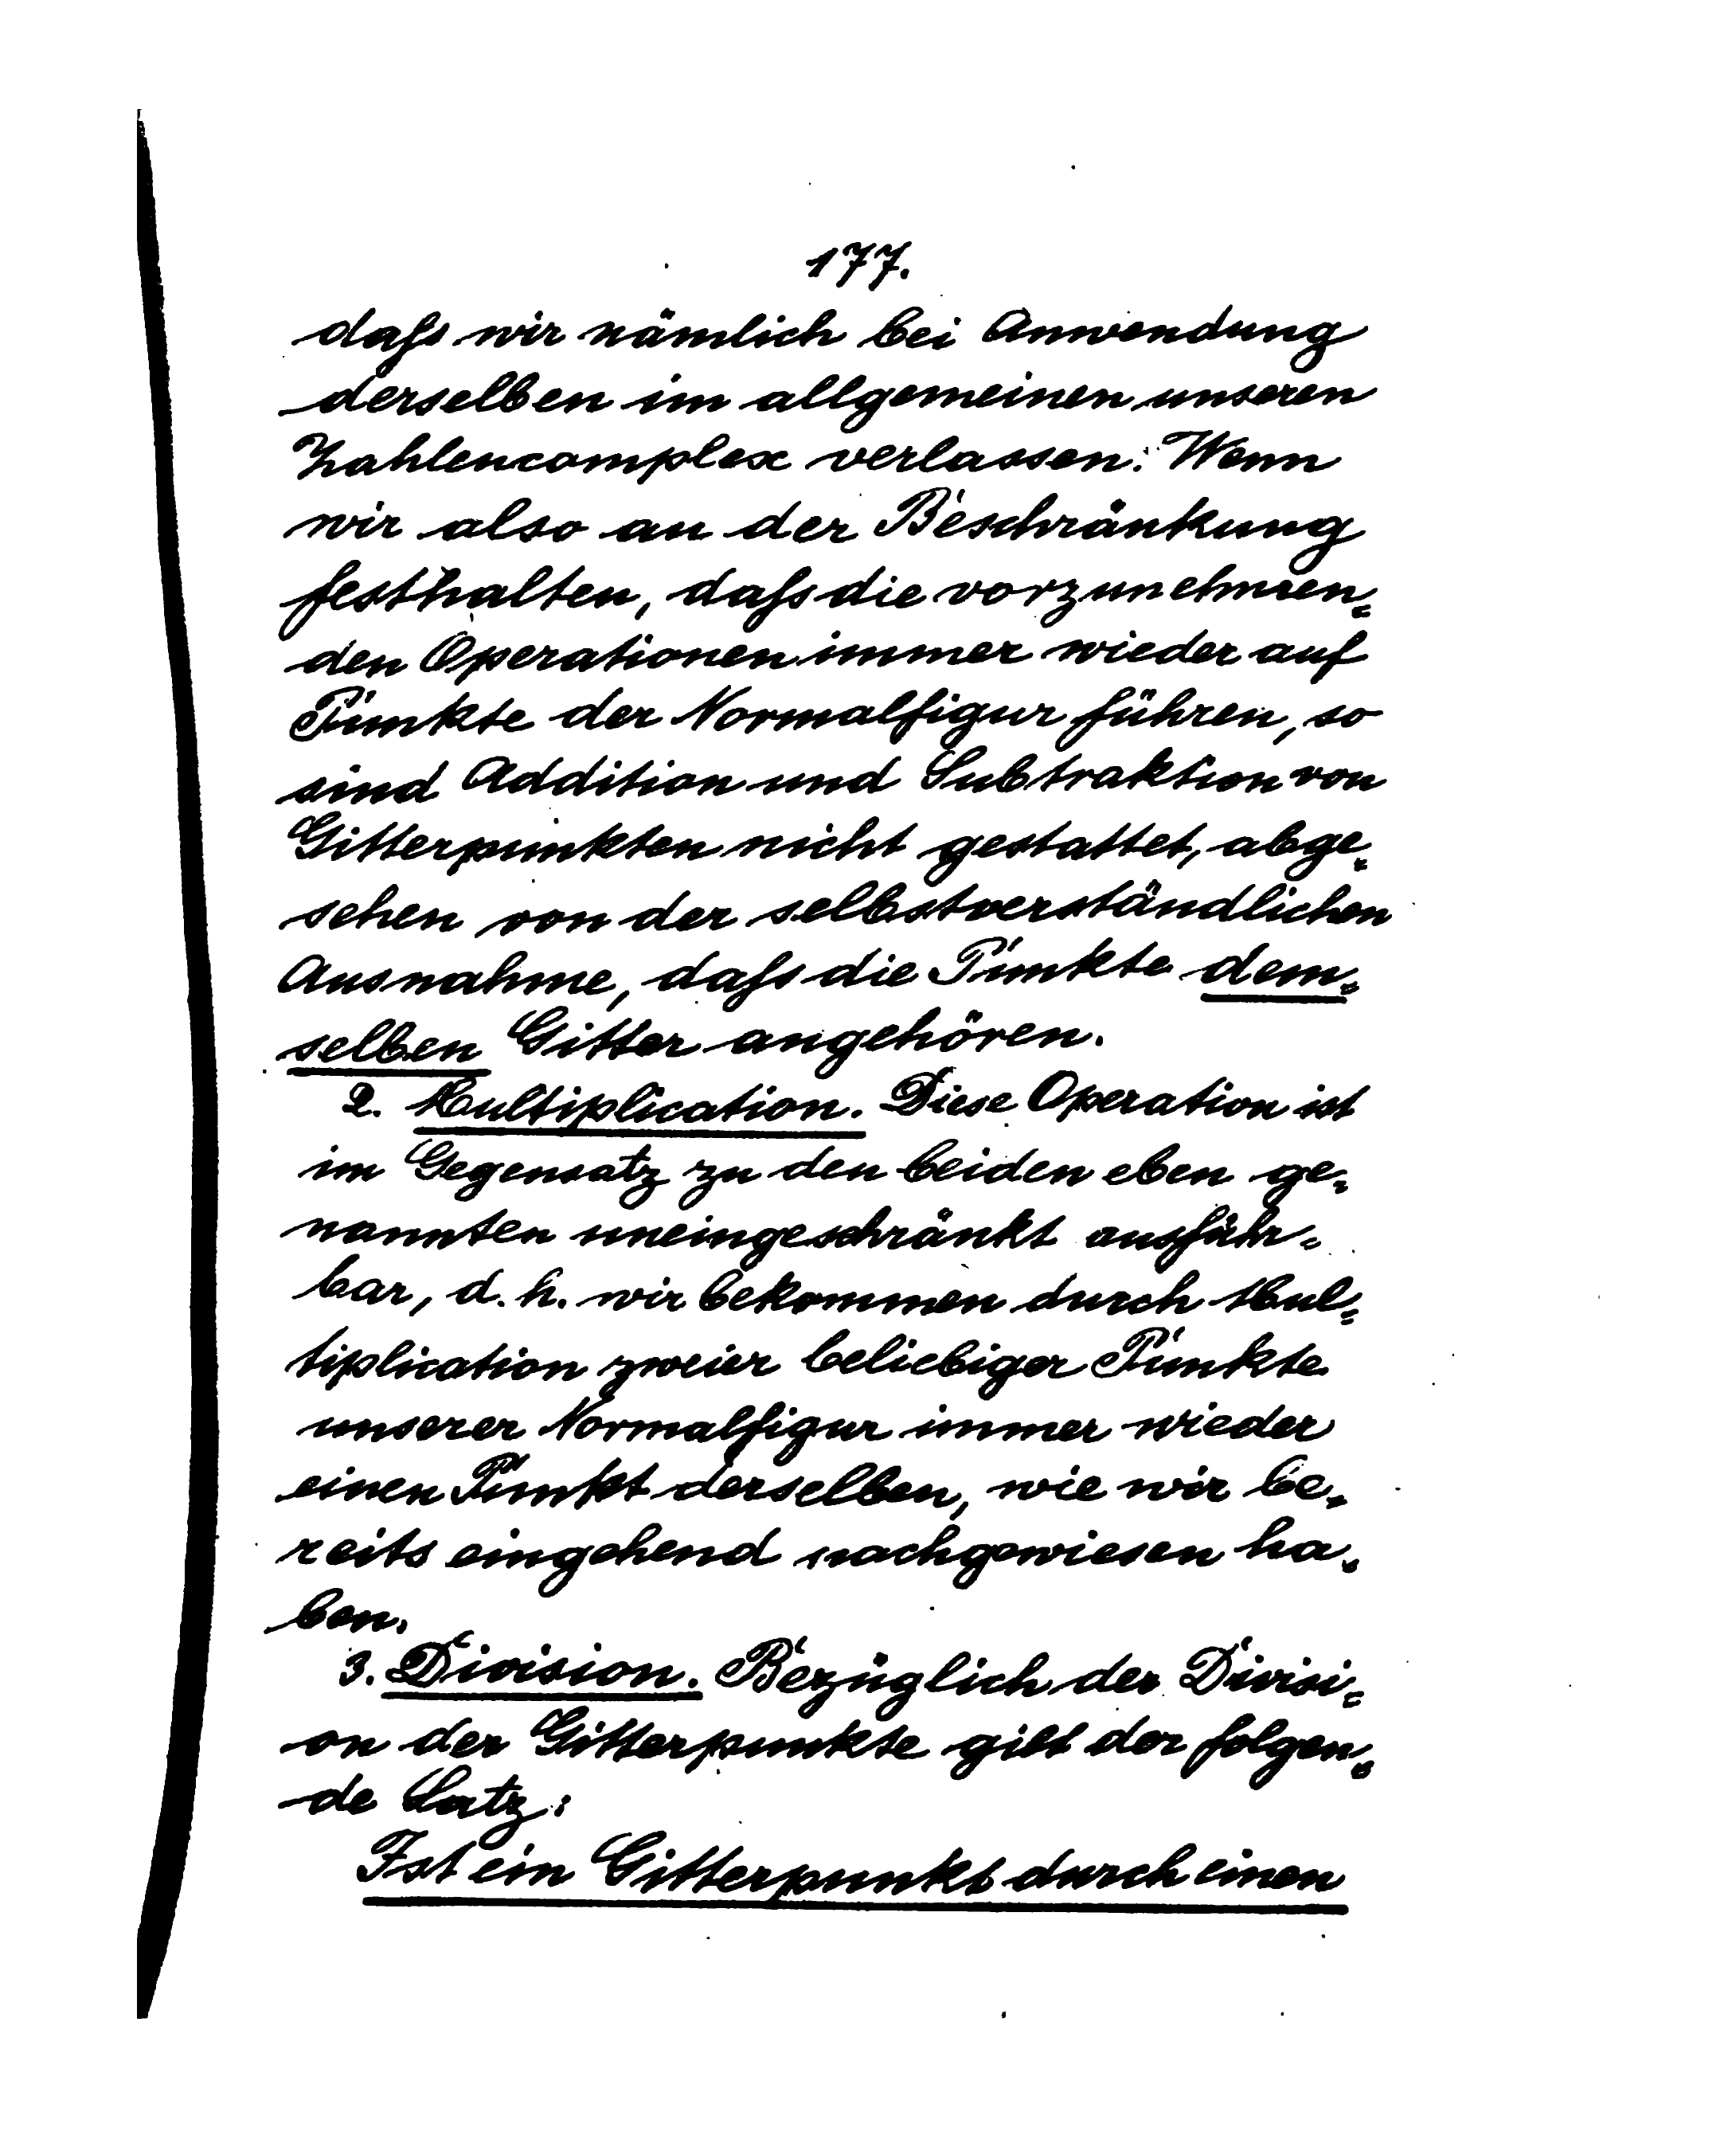 177.
daſs wir nämlich bei Anwendung
derselben im allgemeinen unseren
Zahlencomplex verlassen. Wenn
wir also an der Beschränkung
festhalten, daſs die vorzunehmen=
den Operationen immer wieder auf
Punkte der Normalfigur führen, so
sind Addition und Subtraktion von
Gitterpunkten nicht gestattet, abge=
sehen von der selbstverständlichen
Ausnahme, daſs die Punkte dem=
selben Gitter angehören.
2. Multiplication. Diese Operation ist
im Gegensatz zu den beiden eben ge=
nannten uneingeschränkt ausführ=
bar, d. h. wir bekommen durch Mul=
tiplication zweier beliebiger Punkte
unserer Normalfigur immer wieder
einen Punkt derselben, wie wir be=
reits eingehend nachgewiesen ha=
ben.
3. Division. Bezüglich der Divisi=
on der Gitterpunkte gilt der folgen=
de Satz:
Ist ein Gitterpunkt durch einen